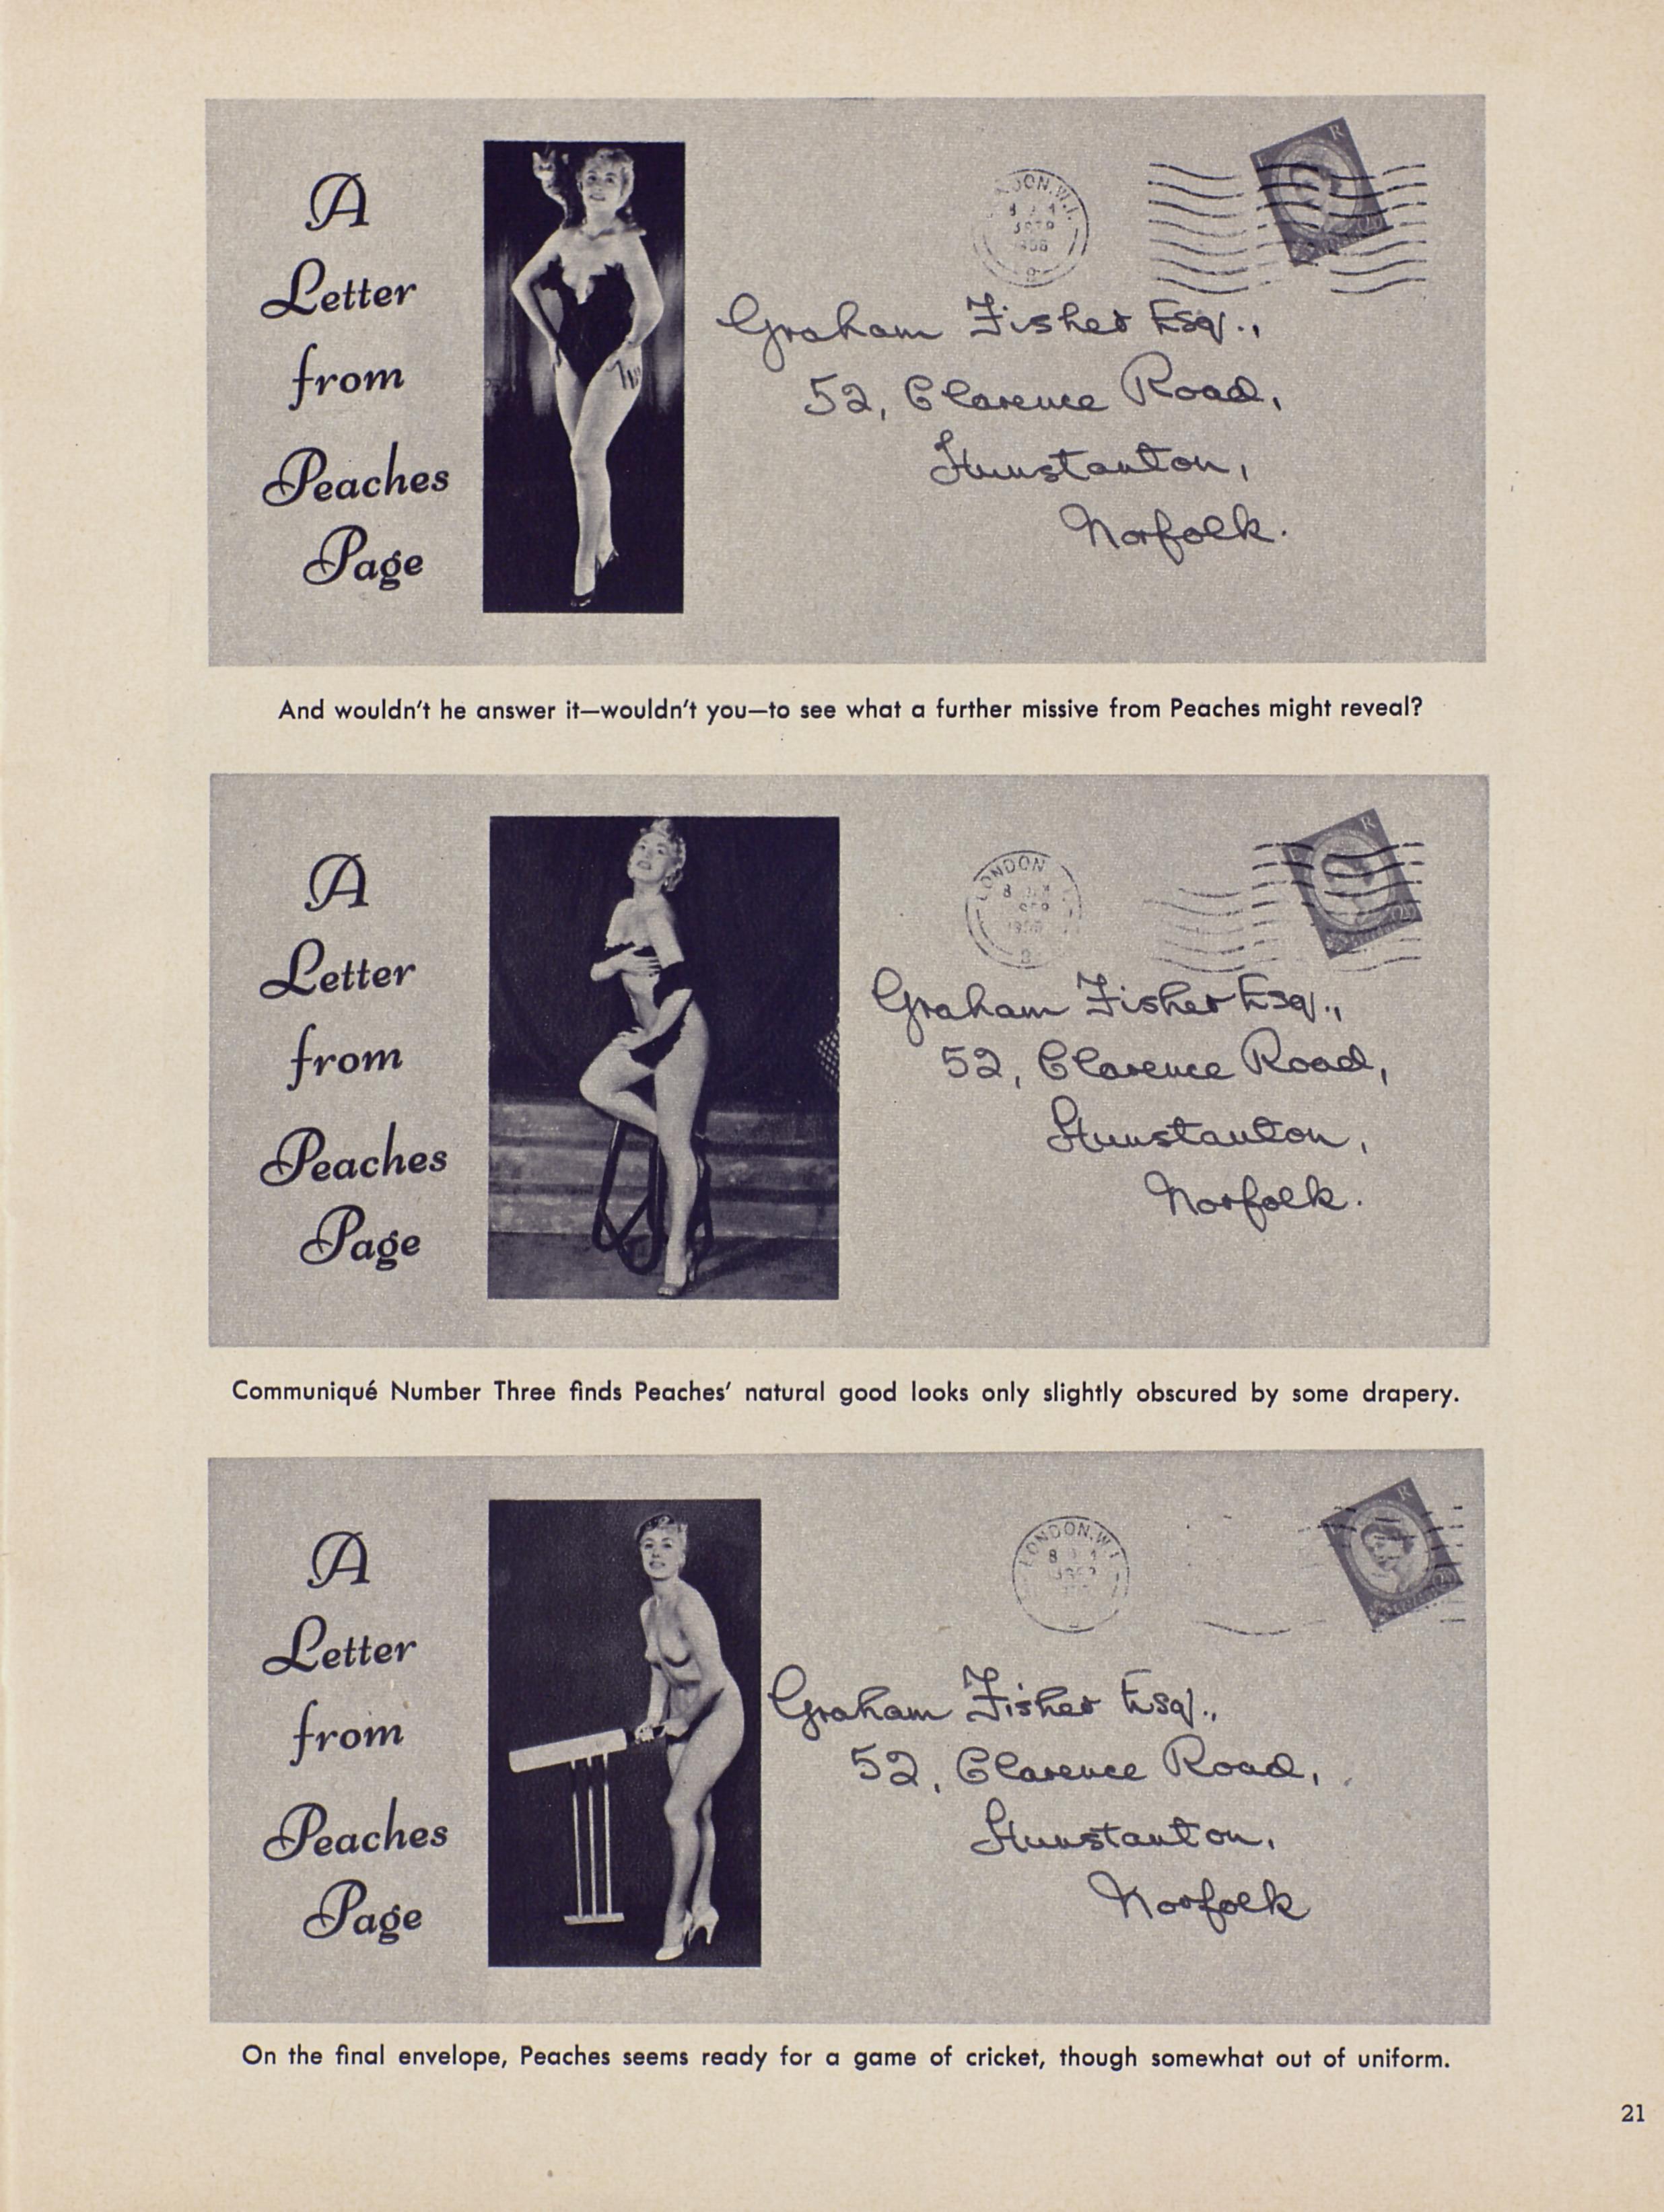 A
Letter
from
Peaches
Page
Graham Fisher Esq.,
52, Clarence Road,
Hunstanton,
Norfolk.
And wouldn't he answer it—wouldn't you—to see what a further missive from Peaches might reveal?
A
Letter
from
Peaches
Page
LONDON
Graham Fisher Esq.,
52, Clarence Road,
Hunstanton,
Norfolk.
Communiqué Number Three finds Peaches' natural good looks only slightly obscured by some drapery.
A
Letter
from
Peaches
Page
LONDON.W.1
Graham Fisher Esq.,
52, Clarence Road,
Hunstanton,
Norfolk
On the final envelope, Peaches seems ready for a game of cricket, though somewhat out of uniform.
21